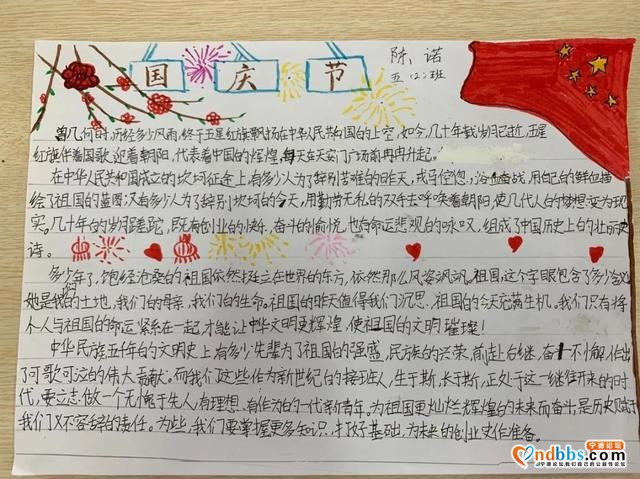 国庆节
陈诺
五(2)班
曾几何时,历经多少风雨,终于五星红旗飘扬在中华人民共和国的上空,如今,几十年载岁月已逝,五星
红旗伴着国歌,迎着朝阳,代表着中国的辉煌,每天在天安门广场前冉冉升起。
在中华人民共和国成立的坎坷征途上,有多少人为了辞别苦难的昨天,戎马倥偬,浴血奋战,用自己的鲜血描
绘了祖国的蓝图;又有多少人为了辞别坎坷的今天,用勤劳无私的双手去呼唤着朝阳,使几代人的梦想变为现
实。几十年的岁月蹉跎,既有创业的快乐,奋斗的愉悦,也有命运悲观的咏叹,组成了中国历史上的壮丽史
诗。
多少年了,饱经沧桑的祖国依然挺立在世界的东方,依然那么风姿飒飒。祖国,这个字眼包含了多少含义
她是我的土地,我们的母亲,我们的生命。祖国的昨天值得我们沉思,祖国的今天充满生机。我们只有将
个人与祖国的命运紧系在一起,才能让中华文明更辉煌,使祖国的文明璀璨!
中华民族五千年的文明史上,有多少先辈为了祖国的强盛,民族的兴荣,前赴后继,奋斗不懈,作出
了可歌可泣的伟大贡献。而我们这些作为新世纪的接班人,生于斯,长于斯,正处于这一继往开来的时
代,更立志做一个无愧于先人,有理想、有作为的一代新青年,为祖国更灿烂辉煌的未来而奋斗是历史赋于
我们义不容辞的责任。为此,我们要掌握更多知识,打好基础,为未来的创业史作准备。
ndbbs.com
宁德论坛